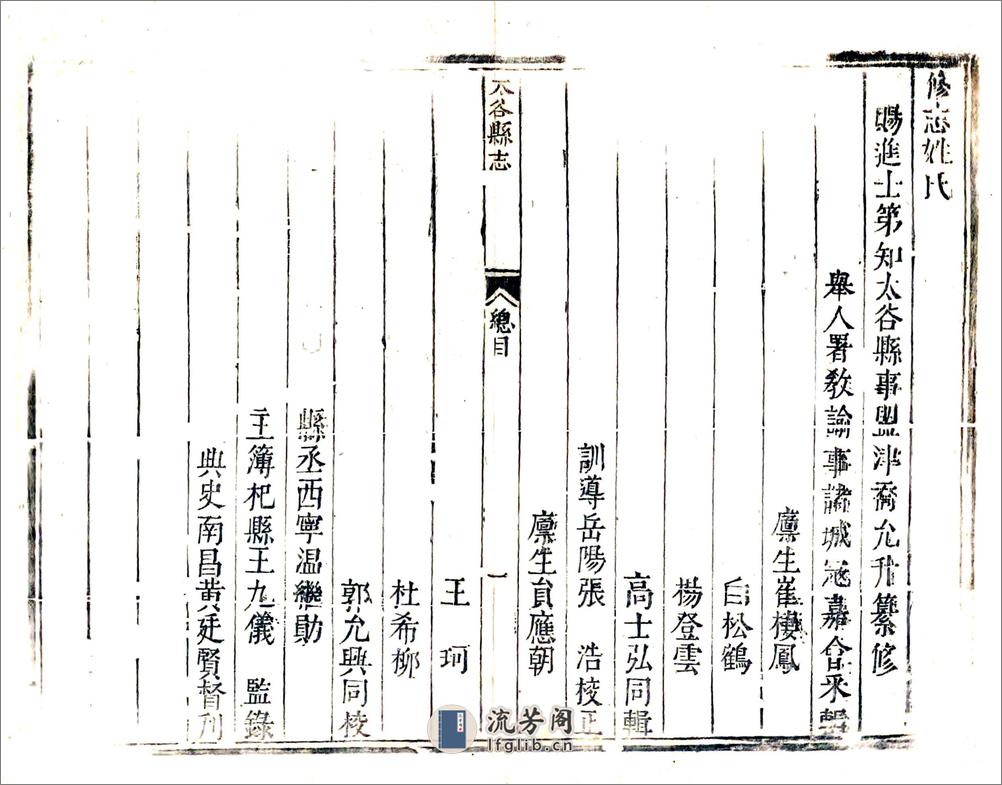 修志姓氏
賜進士第知太谷縣事盟津喬允升纂修
舉人署教諭事諸城冦嘉會采輯
廪生崔棲鳳
白松鶴
楊登雲
高士弘同輯
訓導岳陽張 浩校正
廪生貟應朝
太谷縣志
總目
一
王 珂
杜希栁
郭允興同校
縣丞西寧温繼勛
主簿杞縣王九儀 監錄
典史南昌黄廷賢督刋
流芳阁
lfglib.cn